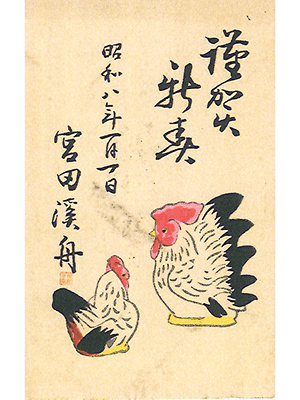 謹賀
新春
昭和八年一月一日
宮田溪舟